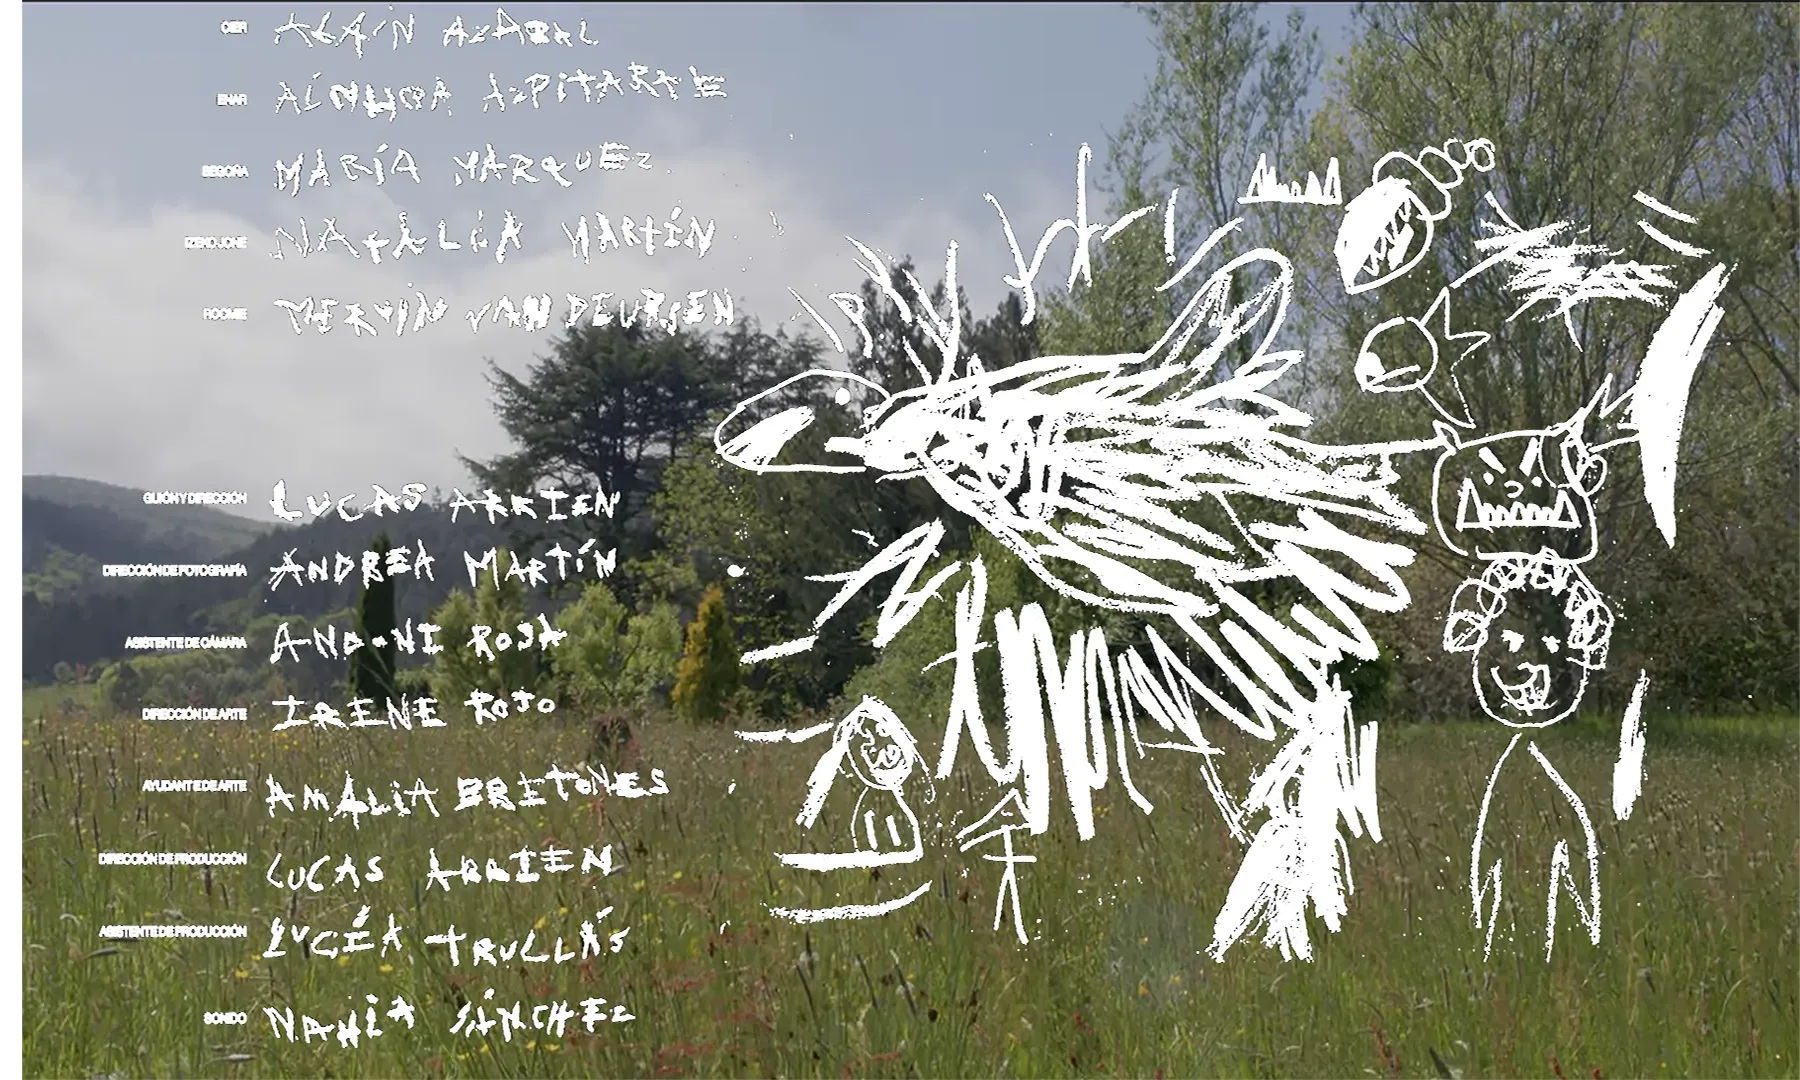 OIER ALAIN
ENAR AINHOA AZPITARTE
BEGOÑA MARÍA MÁRQUEZ
IZEKO JONE NATALIA MARTÍN
ROOMIE MERVIN VAN DEURSEN
GUIÓN Y DIRECCIÓN LUCAS ARRIEN
DIRECCIÓN DE FOTOGRAFÍA ANDREA MARTÍN
ASISTENTE DE CÁMARA ANDONI ROJA
DIRECCIÓN DE ARTE IRENE ROJO
AYUDANTE DE ARTE AMALIA BRITONES
DIRECCIÓN DE PRODUCCIÓN LUCAS ARRIEN
ASISTENTE DE PRODUCCIÓN LUCÍA TRULLÁS
SONIDO NAHIA SÁNCHEZ